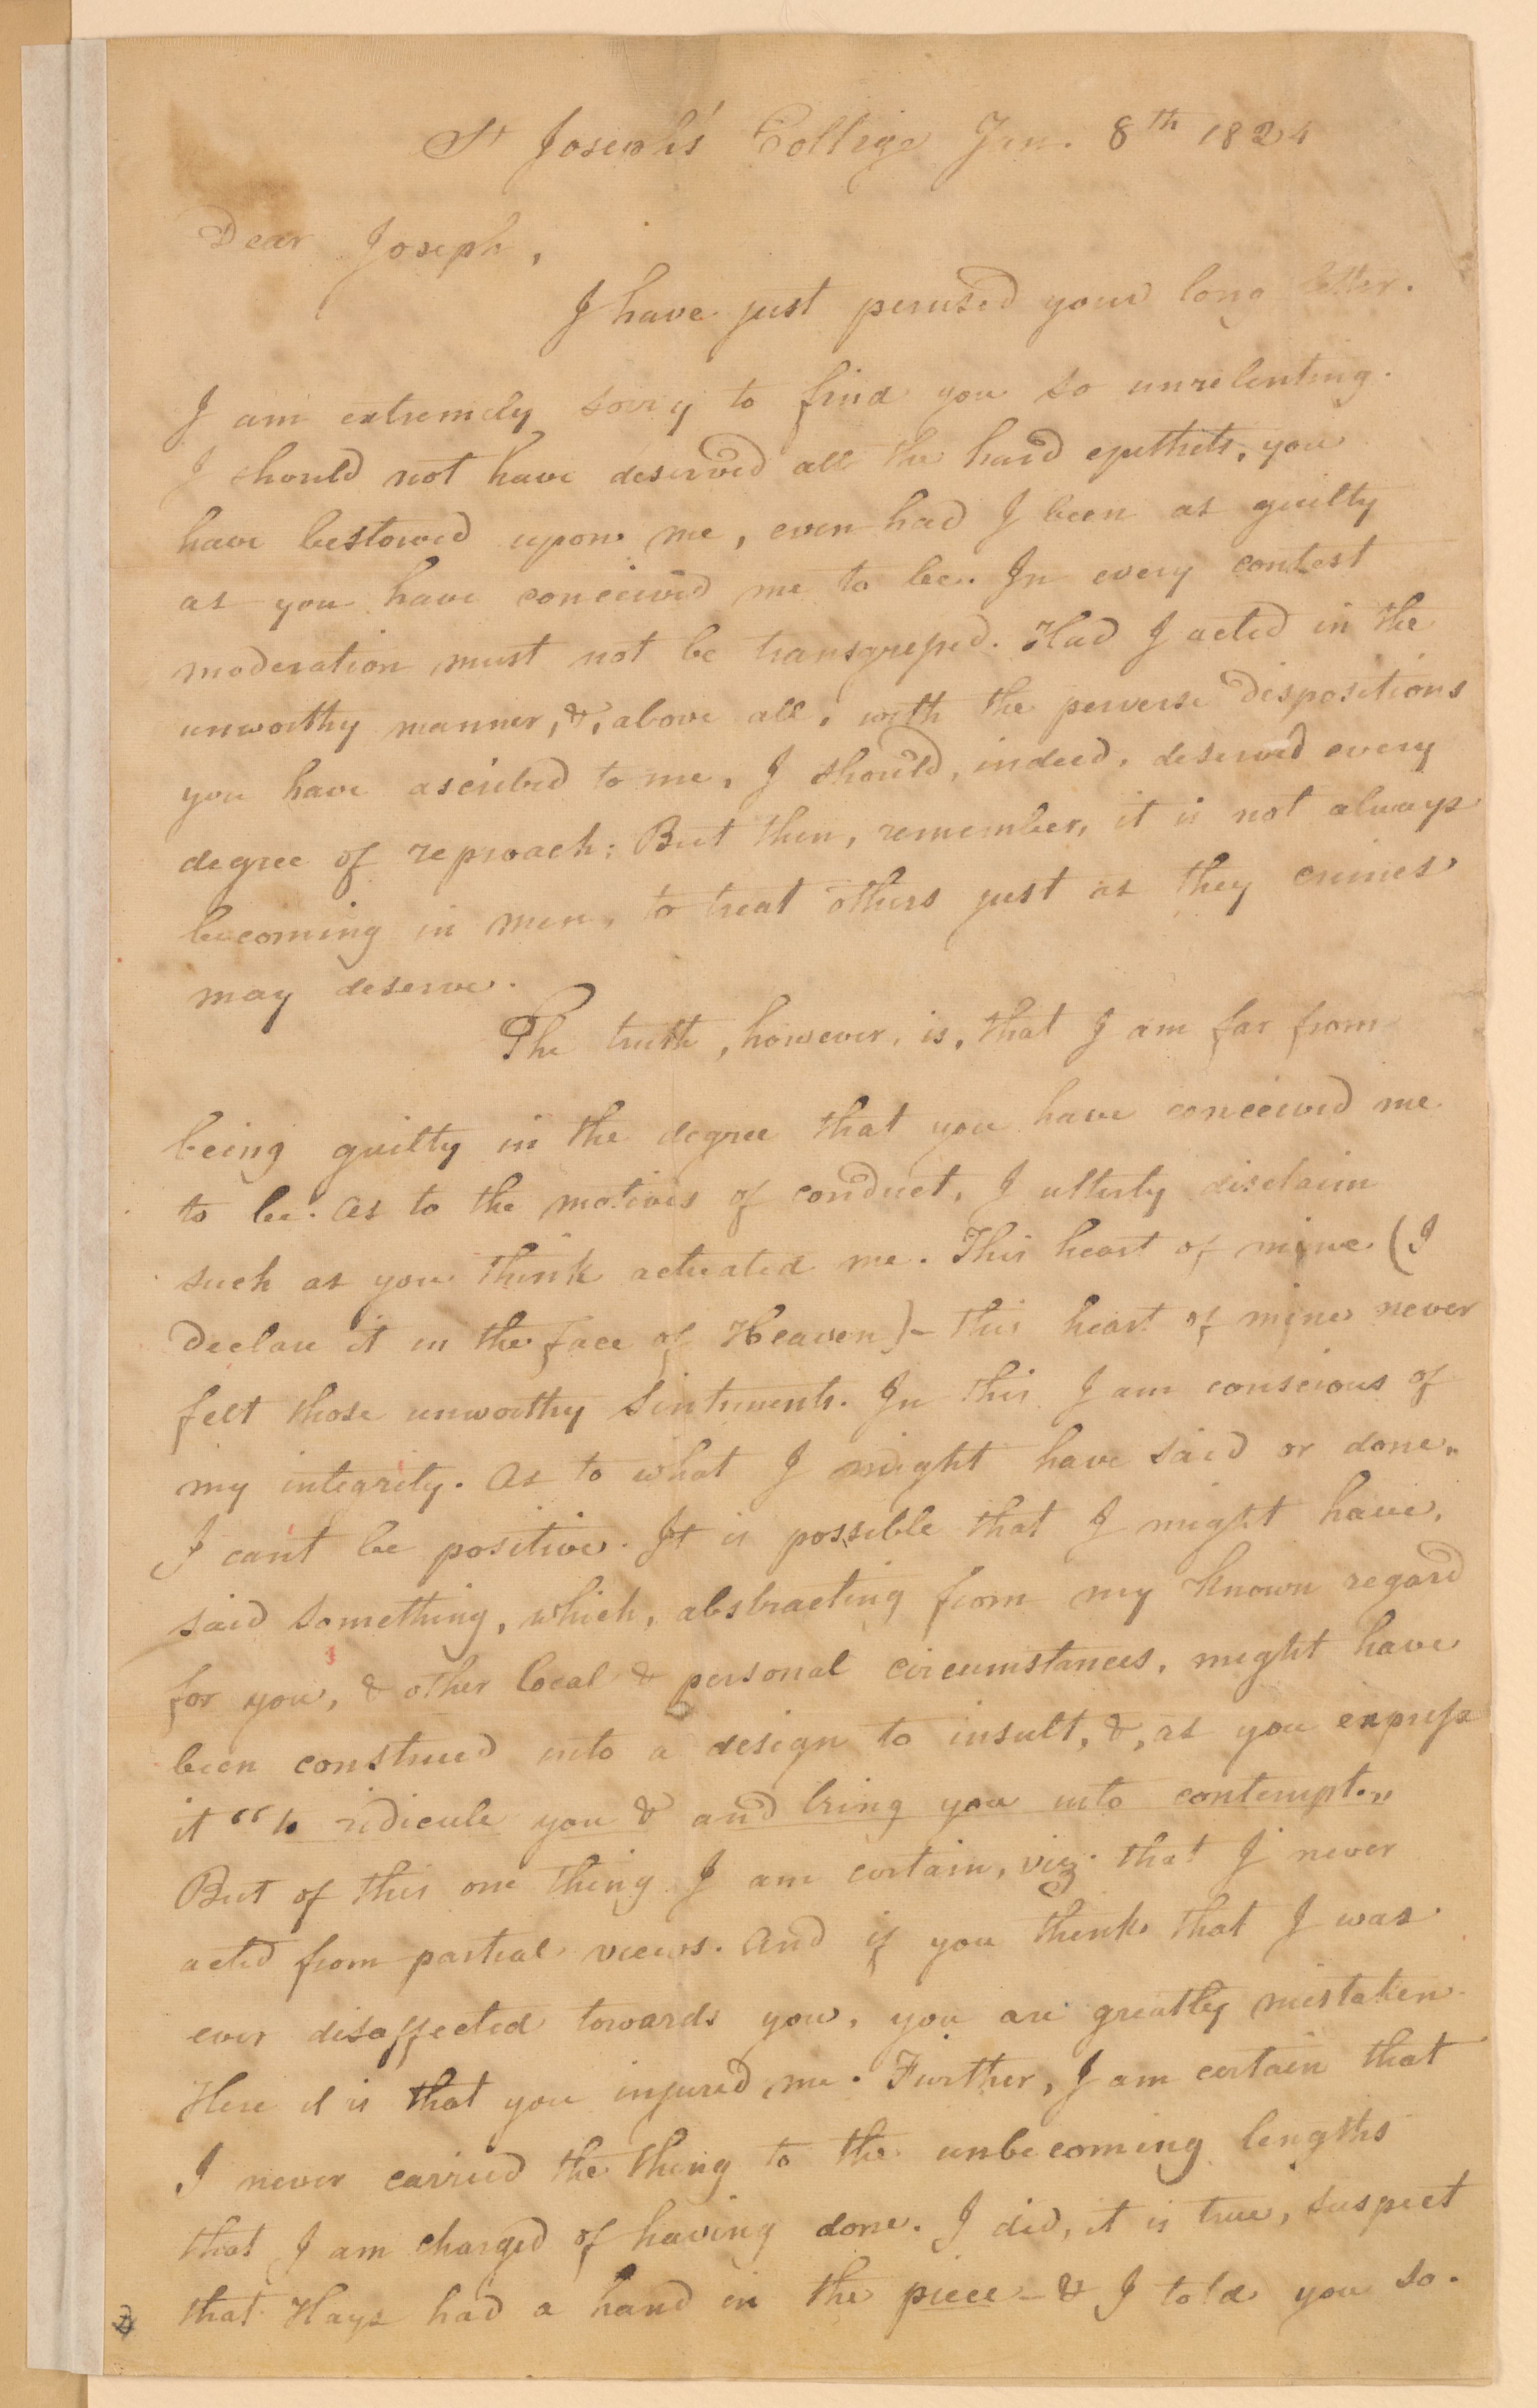 St Joseph's College Jan. 8th 1824
Dear Joseph,
I have just perused your long letter.
I am extremely sorry to find you so unrelenting.
I should not have deserved all the hard epithets, you
have bestowed upon me, even had I been as guilty
as you have conceived me to be. In every contest
moderation must not be transgressed. Had I acted in the
unworthy manner, &, above all, with the perverse dispositions
you have ascribed to me, I should, indeed, deserved every
degree of reproach: But then, remember, it is not always
becoming in men, to treat others just as they crimes
may deserve.
The truth, however, is, that I am far from
being guilty in the degree that you have conceived me
to be. As to the motives of conduct, I utterly disclaim
such as you think actuated me. This heart of mine (I
declare it in the face of Heaven) - this heart of mine never
felt those unworthy sintiments. In this I am conscious of
my integrity. As to what I might have said or done,
I can't be positive. It is possible that I might have,
said something, which, abstracting from my known regard
for you, & other local & personal circumstances, might have
been construed into a design to insult, &, as you express
it "to ridicule you & and bring you into contempt."
But of this one thing I am certain, viz. that I never
acted from partial views. And if you think that I was
ever disaffected towards you, you are greatly mistaken.
Here it is that you injured me. Further, I am certain that
I never carried the thing to the unbecoming lengths
that I am charged of having done. I did, it is true, suspect
that Hays had a hand in the piece - & I told you so.